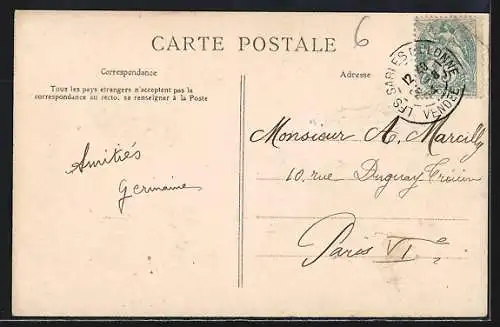 CARTE POSTALE
6
Correspondance
Tous les pays étrangers n'acceptent pas la
correspondance au recto, se renseigner à la Poste
Adresse
LES SABLES D'OLONNE
VENDÉE
Amitiés
Germaine
Monsieur A. Marcilly
10, rue Duguay Trouin
Paris VI e